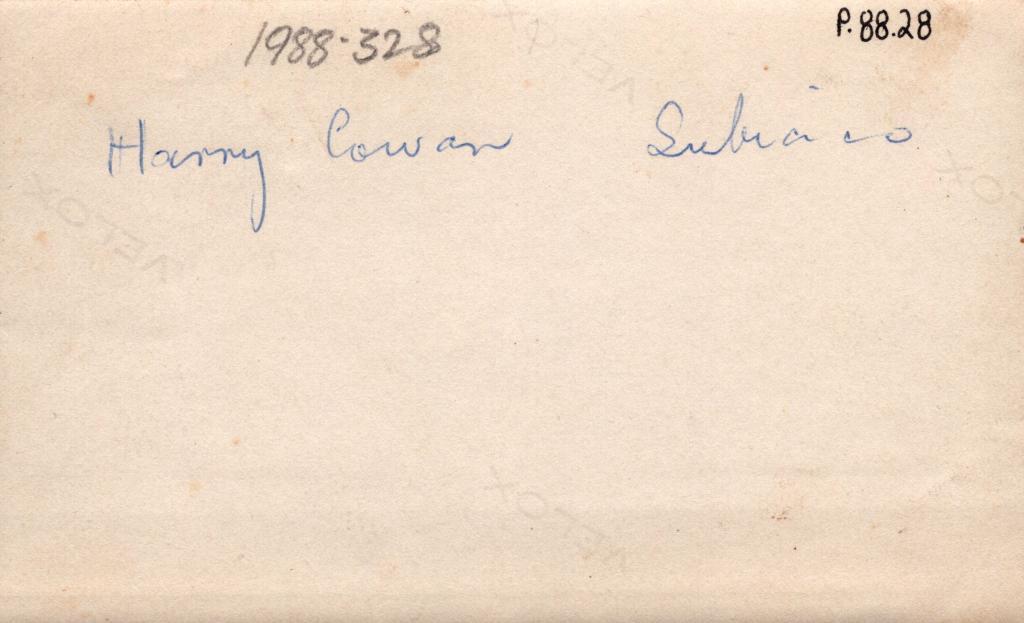 1988.328
P.88.28
Harry Cowan Subiaco
VELOX
VELOX
VELOX
VELOX